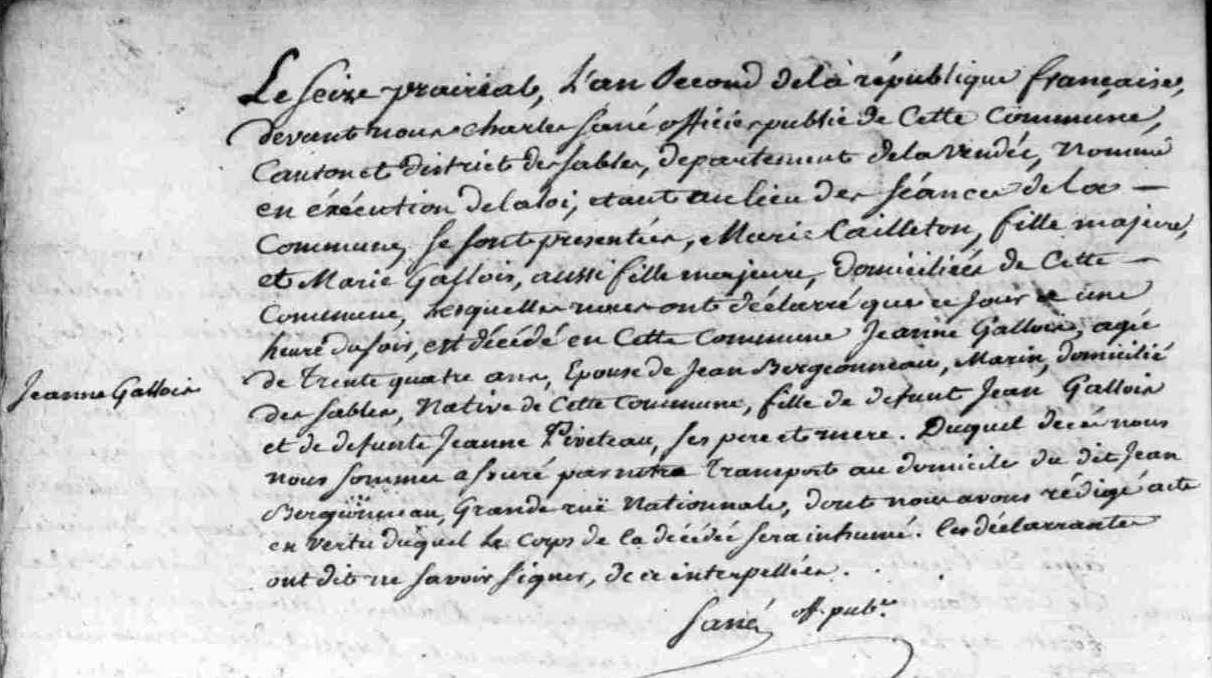 Le seize prairial, L'an second de la république française,
devant nous charles sané officier public de Cette Commune,
Canton et district des sables, departement de la vendée, nommé
en éxécution de la loi, etant au lieu des séances de la —
Commune, se sont presentées, Marie Cailleton, fille majeure,
et Marie Gallois, aussi fille majeure, domiciliées de Cette —
Commune, Lesquelles nous ont déclarré que ce jour a une
heure du soir, est décédé en Cette Commune Jeanne Gallois, agée
Jeanne Gallois
de Trente quatre ans, Epouse de Jean Bergeonneau, Marin, domicilié
des sables, Native de Cette Commune, fille de defunt Jean Gallois
et de defunte Jeanne Piveteau, ses pere et mere. Duquel décés nous
nous sommes assuré par notre Transport au domicile du dit Jean
Bergeonneau, Grande rüe Nationnale, dont nous avons rédigé acte
en vertu duquel le Corps de la décédée sera inhumé. les déclarrantes
ont dit ne savoir signer, de ce interpellées.
Sané off. pub.